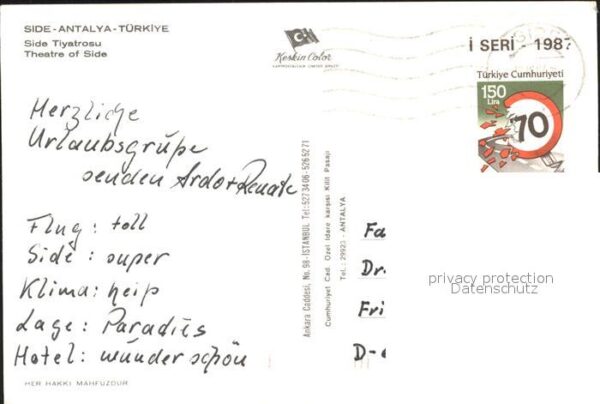 SIDE-ANTALYA-TÜRKİYE
Side Tiyatrosu
Theatre of Side
Keskin Color
İ SERİ - 1987
Türkiye Cumhuriyeti
150
Lira
70
Herzliche
Urlaubsgrüße
senden Ardo + Renate
Flug: toll
Side: super
Klima: heiß
Lage: Paradies
Hotel: wunderschön
HER HAKKI MAHFUZDUR
Ankara Caddesi, No. 98-İSTANBUL Tel: 5273406-5265271
Cumhuriyet Cad. Özel İdare karşısı Kilit Pasajı
Tel.: 29923 - ANTALYA
Fa
Dr.
Fri
D-
privacy protection
Datenschutz